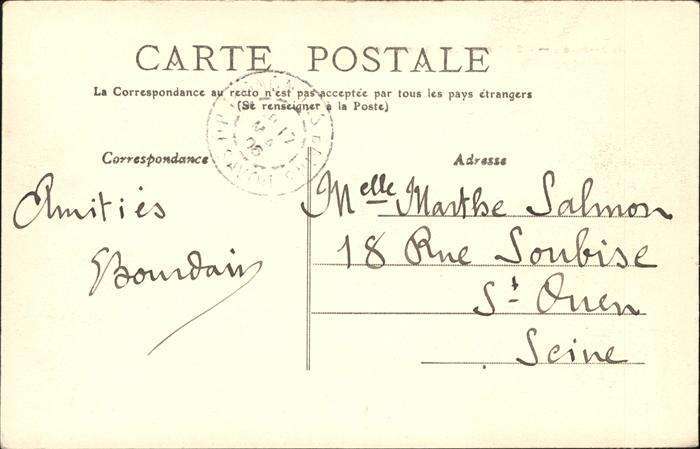 CARTE POSTALE
La Correspondance au recto n'est pas acceptée par tous les pays étrangers
(Se renseigner à la Poste)
Correspondance
Amitiés
Bourdain
Adresse
Melle Marthe Salmon
18 Rue Soubise
St Ouen
Seine